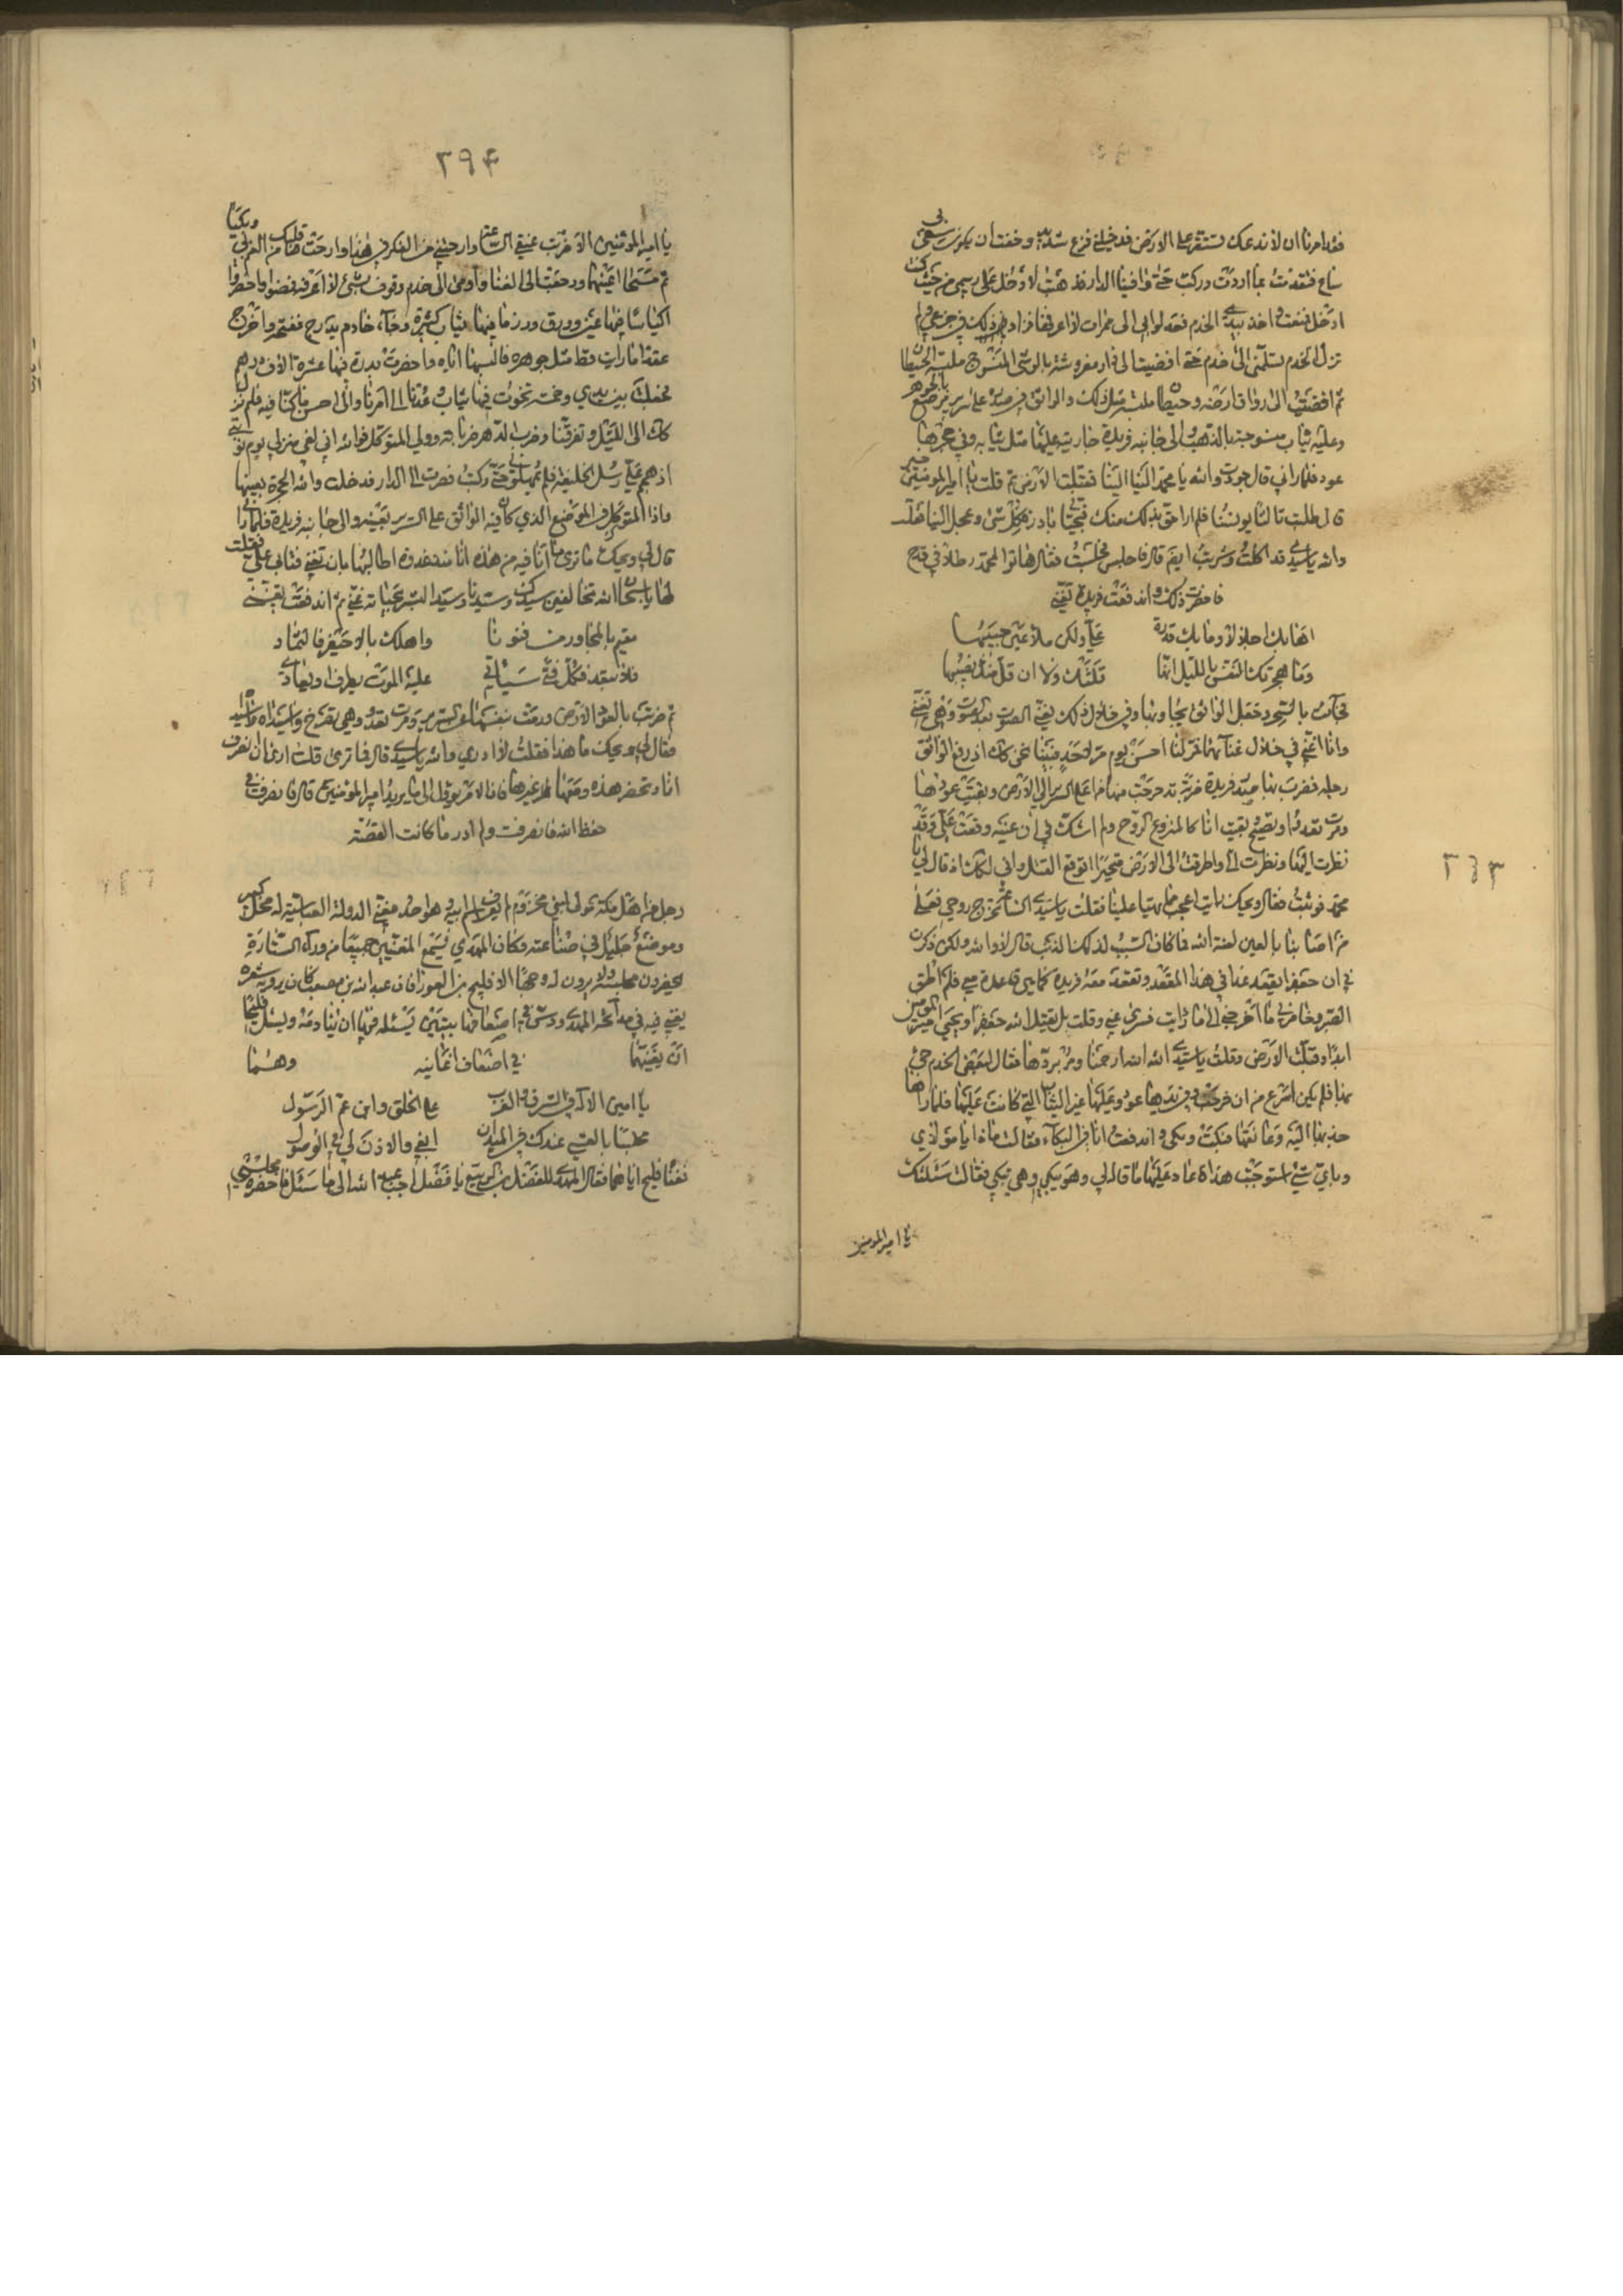 فقد امرنا ان لا ندعك تستقر على الارض فدخلني فزع شديد وخفت ان يكون سعى بي
ساع فتقدمت بما اردت وركبت حتى وافينا الدار فذهبت لادخل على رسمي من حيث كنت
ادخل فمنعت واخذ بيدي الخدم فعدلوا بي الى ممرات لا اعرفها فزاد ذلك في جزعي ولم
تزل الخدم تسلمني الى خدم حتى افضيت الى دار مفروشة بالوشي المنسوج ملبسة الحيطان
ثم افضيت الى رواق ارضه وحيطانه ملبسة مثل ذلك والواثق في صدره على سرير مرصع بالجوهر
وعليه ثياب منسوجة بالذهب والى جانبه فريدة جاريته عليها مثل ثيابه وفي حجرها
عود فلما راني قال جودت والله يا محمد الينا الينا فقبلت الارض ثم قلت يا امير المؤمنين خير
قال طلبت ثالثا يونسنا فلم ار احق بذلك منك فبحياتي بادر فكل شي وعجل الينا فقلت
والله يا سيدي قد اكلت وشربت ايضا قال فاجلس فجلست فقال هاتوا لمحمد رطلا في قدح
فاحضرت ذلك واندفعت فريدة تغني
اهابك اجلالا وما بك قدرة علي ولكن ملا عين حبيبها
وما هجرتك النفس يا ليل انها قلتك ولا ان قل منك نصيبها
فجاءت بالسحر وجعل الواثق يجاوبها وفي خلال ذلك تغني الصوت بعد الصوت وهي تغني
وانا اغني في خلال غنائهما فمر لنا احسن يوم مر لاحد فبينا نحن كذلك اذ رفع الواثق
رجله فضرب بها صدر فريدة ضربة تدحرجت منها من اعلى السرير الى الارض وتفتت عودها
ومرت تعدو وتصيح وبقيت انا كالمنزوع الروح ولم اشك في ان عينه وقعت علي وقد
نظرت اليها ونظرت الي واطرقت الى الارض متحيرا اتوقع القتل واني لكذلك اذ قال لي يا
محمد فوثبت فقال ويحك رايت اعجب مما تهيا علينا فقلت يا سيدي الساعة تخرج روحي فعلى
من اصابنا بالعين لعنة الله فما كان السبب لذلك الذنب قال لا والله ولكن ذكرت
في ان جعفرا يقعد غدا في هذا المقعد وتقعد معه فريدة كما هي قاعدة معي فلم اطق
الصبر وخامرني ما اخرجني الى ما رايت فسري عني وقلت بل يقتل الله جعفرا ويحيى امير المؤمنين
ابدا وقبلت الارض وقلت يا سيدي الله الله ارحمنا ومر بردها فقال لبعض الخدم مر فجئ
بها فلم يكن اسرع من ان خرجت وفي يدها عود وعليها غير الثياب التي كانت عليها فلما راها
جذبها اليه وعانقها فبكت وبكى واندفعت انا في البكاء فقالت ما ذا يا مولاي
وباي شئ استوجبت هذا فاعاد عليها ما قال لي وهو يبكي وهي تبكي فقالت سئلتك
يا امير المؤمنين
٢٩٤
يا امير المؤمنين الا ضربت عنقي الساعة وارحتني من الفكر في هذا وارحت قلبك من الهم بي وبكيا
ثم مسحا اعينهما ورجعت الى الغنا واومى الى خدم وقوف بشئ لا اعرفه فمضوا واحضروا
اكياسا فيها عين وورق ورزما فيها ثياب كثيرة وجاء خادم بدرج ففتحه واخرج
عقدا ما رايت قط مثل جوهره فالبسها اياه واحضرت بدرة فيها عشرة الاف درهم
فجعلت بين يدي وخمسة تخوت فيها ثياب وعدنا الى امرنا والى احسن ما كنا فيه فلم نزل
كذلك الى الليل وتفرقنا وضرب الدهر ضرباته وولي المتوكل فوالله اني لفي منزلي يوم نوبتي
اذ هجم علي رسل الخليفة فلم يمهلوني حتى ركبت فصرت الى الدار فدخلت والله الحجرة بعينها
واذا المتوكل في الموضع الذي كان فيه الواثق على السرير بعينه والى جانبه فريدة فلما راني
قال لي ويحك ما ترى ما انا فيه من هذه انا منذ غدوة اطالبها بان تغني فتابى علي فقلت
لها يا سبحان الله تخالفين سيدك وسيدنا وسيد البشر بحياته غني ثم اندفعت تغني
مقيم بالمجازة من قنونا واهلك بالاجيفر فالثماد
فلا تبعد فكل فتى سياتي عليه الموت يطرق او يغادي
ثم ضربت بالعود الارض ورمت بنفسها عن السرير ومرت تعدو وهي تصرخ واسيداه
فقال لي ويحك ما هذا فقلت لا ادري والله يا سيدي قال فما ترى قلت ارى ان انصرف
انا وتحضر هذه ومعها غيرها فان الامر يؤول الى ما يريد امير المؤمنين قال فانصرف في
حفظ الله فانصرفت ولم ادر ما كانت القصة
رجل من اهل مكة مولى لبني مخزوم لم يعرف اسم ابيه وهو احد مغني الدولة العباسية له محل كبير
وموضع جليل في صناعته وكان المهدي يسمع المغنيين جميعا من وراء الستارة
يحضرون مجلسه ولا يرون له وجها الا فليح بن العورا فان عبد الله بن مصعب كان يرويه شعره
يغني فيه في مدائحه المهدي ودس في اضعافها بيتين يسئله فيهما ان ينادمه ويسئل فليحا
ان يغنيهما في اضعاف اغانيه وهما
يا امين الاله في الشرق والغرب على الخلق وابن عم الرسول
مجلسا بالعشي عندك في الميدان ابغي والاذن لي في الوصول
فغنى فليح اياهما فقال المهدي للفضل بن الربيع يا فضل اجب عبد الله الى ما سئل فاحضره مجلسي